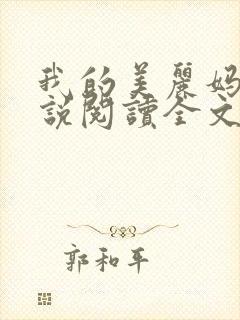 我的美麗妈
說閱讀全文
郭和平